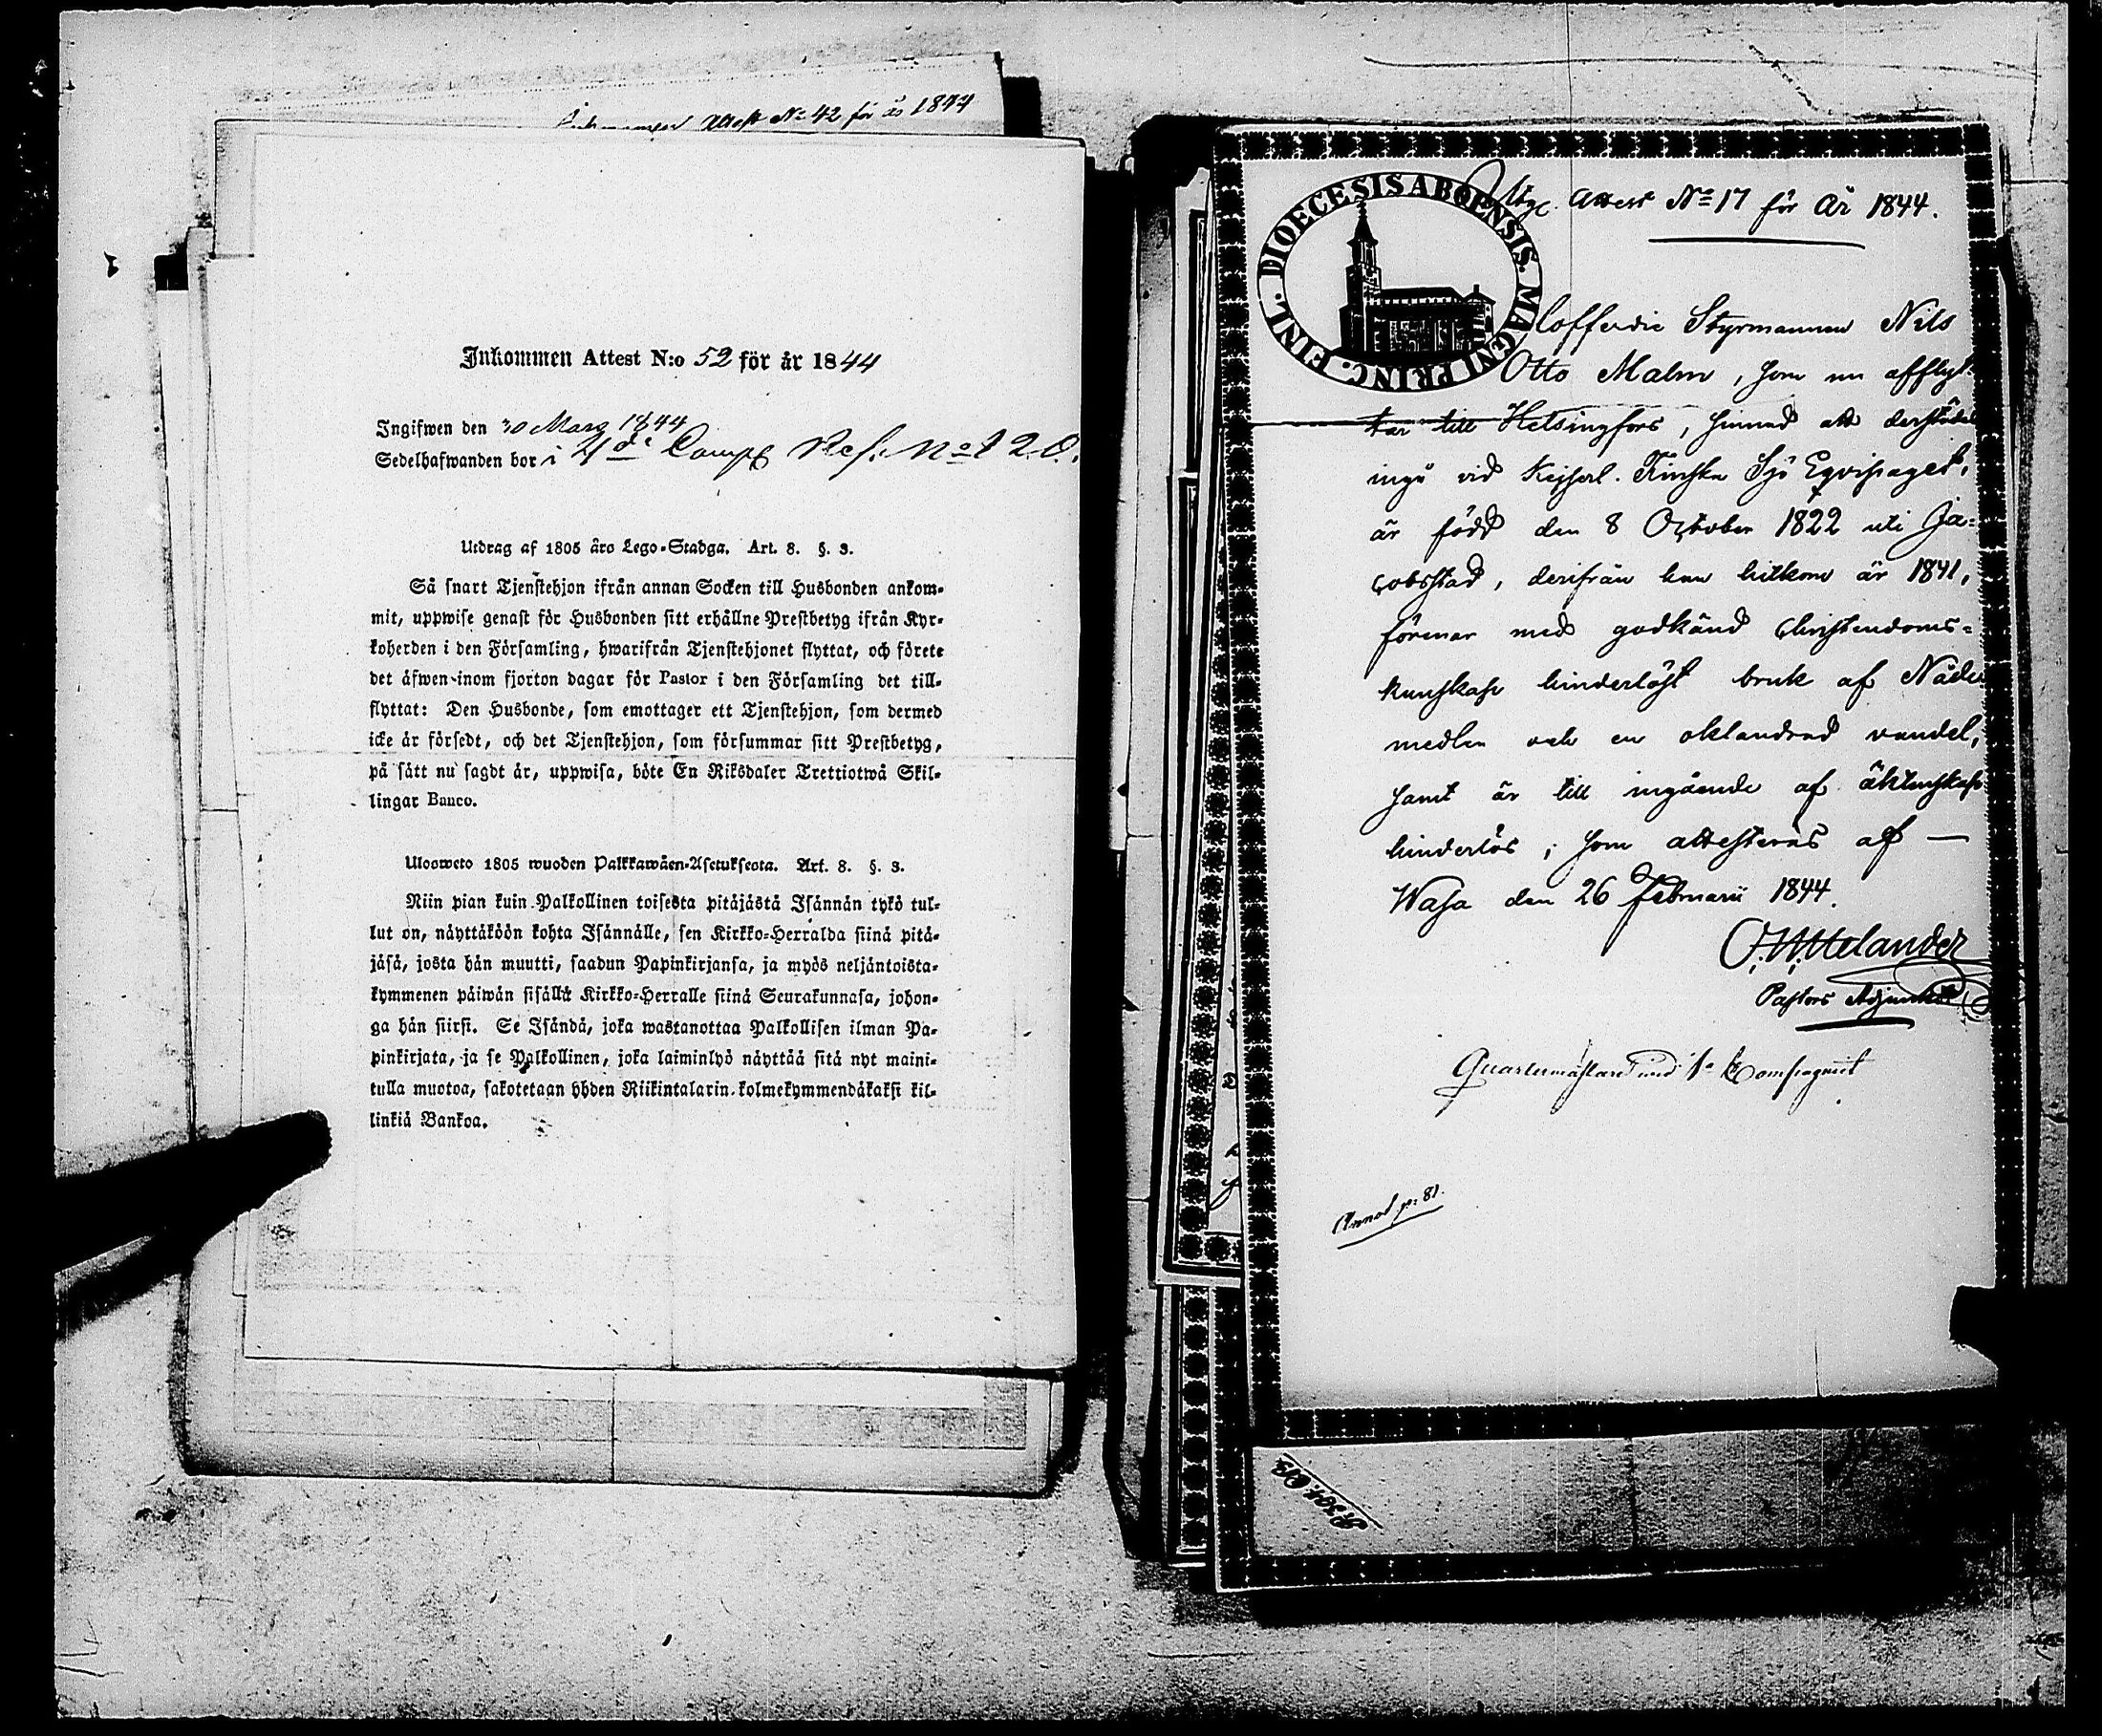 Attest No 42 för år 1844
Inkommen Attest N:o 52 för år 1844
Ingifwen den 30 Mars 1844
Sedelhafwanden bor i 4de Comp. No 120.
Utdrag af 1805 års Lego-Stadga. Art. 8. §. 3.
Så snart Tjenstehjon ifrån annan Socken till Husbonden ankom-
mit, uppwise genast för Husbonden sitt erhållne Prestbetyg ifrån Kyr-
koherden i den Församling, hwarifrån Tjenstehjonet flyttat, och förete
det äfwen inom fjorton dagar för Pastor i den Församling det till-
flyttat: Den Husbonde, som emottager ett Tjenstehjon, som dermed
icke är försedt, och det Tjenstehjon, som försummar sitt Prestbetyg,
på sätt nu sagdt är, uppwisa, böte En Riksdaler Trettiotwå Skil-
lingar Banco.
Ulosweto 1805 wuoden Palkkawäen-Asetuksesta. Art. 8. §. 3.
Niin pian kuin Palkollinen toisesta pitäjästä Isännän tykö tul-
lut on, näyttäköön kohta Isännälle, sen Kirkko-Herralda siinä pitä-
jäsä, josta hän muutti, saadun Papinkirjansa, ja myös neljäntoista-
kymmenen päiwän sisällä Kirkko-Herralle siinä Seurakunnasa, johon-
ga hän siirsi. Se Isändä, joka wastanottaa Palkollisen ilman Pa-
pinkirjata, ja se Palkollinen, joka laiminlyö näyttää sitä nyt maini-
tulla muotoa, sakotetaan yhden Riikintalarin kolmekymmendäkaksi kil-
linkiä Bankoa.
DIOECESIS ABOENSIS. MAGNI PRINC. FINL.
Utg. Attest No 17 för År 1844.
Cofferdie Styrmannen Nils
Otto Malm, som nu afflyt-
tar till Helsingfors, sinnad att derstädes
ingå vid Kejserl. Finska Sjö Eqvipaget,
är född den 8 October 1822 uti Ja-
cobsstad, derifrån han hitkom år 1841,
förenar med godkänd Christendoms-
kunskap hinderlöst bruk af Nåde
medlen och en oklandrad vandel,
samt är till ingående af äktenskap
hinderlös; som attesteras af —
Wasa den 26 Februarii 1844.
Melander
Pastors Adjunkt
Quartermästare vid 1a Compagniet
Annot. p: 81.